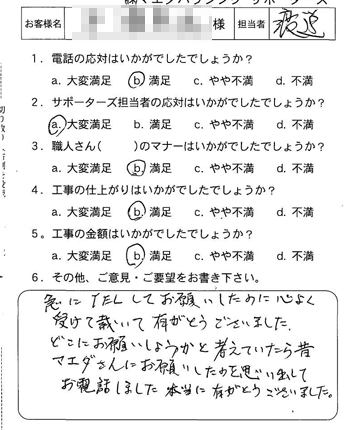 ㈱マエダハウジング サポーターズ
お客様名 様 担当者 渡辺
1．電話の応対はいかがでしたでしょうか？
a. 大変満足 b. 満足 c. やや不満 d. 不満
2．サポーターズ担当者の応対はいかがでしたでしょうか？
a. 大変満足 b. 満足 c. やや不満 d. 不満
3．職人さん(　　)のマナーはいかがでしたでしょうか？
a. 大変満足 b. 満足 c. やや不満 d. 不満
4．工事の仕上がりはいかがでしたでしょうか？
a. 大変満足 b. 満足 c. やや不満 d. 不満
5。工事の金額はいかがでしたでしょうか？
a. 大変満足 b. 満足 c. やや不満 d. 不満
6．その他、ご意見・ご要望をお書き下さい。
急に TELしてお願いしたのに心よく
受けて戴いて有がとうございました．
どこにお願いしようかと考えていたら昔
マエダさんにお願いしたのを思い出して
お電話しました 本当に有がとうございました。